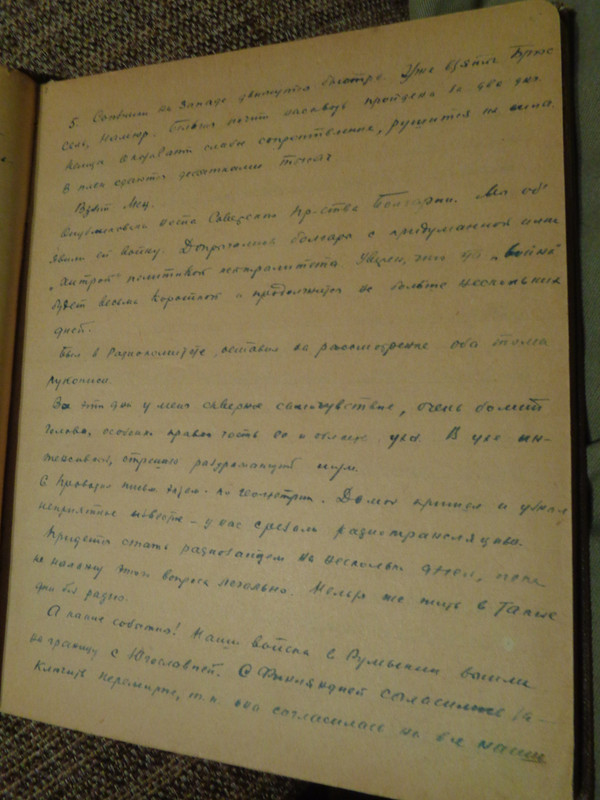 5. События на Западе движутся быстро. Уже взяты Брюс
сель, Намюр. Бельгия почти насквозь пройдена за два дня.
Немцы оказывают слабое сопротивление,
в плен сдаются десятками тысяч
Взят Мец.
Опубликована нота Советского Пр-ства Болгарии. Мы об'
явили ей войну. Допрыгались болгары с придуманной ими
"хитрой" политикой нейтралитета. Уверен, что эта "война"
будет весьма короткой и продолжится не больше нескольких
дней.
Был в Радиокомитете, оставил на рассмотрение оба тома
рукописи.
За эти дни у меня скверное самочувствие, очень болит
голова, особенно правая часть её в области уха. В ухе ин-
тенсивный, страшно раздражающий шум.
С Проводю геометрии. Домой пришел и узнал
неприятное известие - у нас срезали радиотрансляцию.
Придется стать радиозайцем на несколько дней, пока
не налажу этого вопроса легально. Нельзя же жить в такие
дни без радио.
А какие события! Наши войска в Румынии вышли
на границу с Югославией. С Финляндией согласились за-
ключить перемирие, т.к. она согласилась на все наши